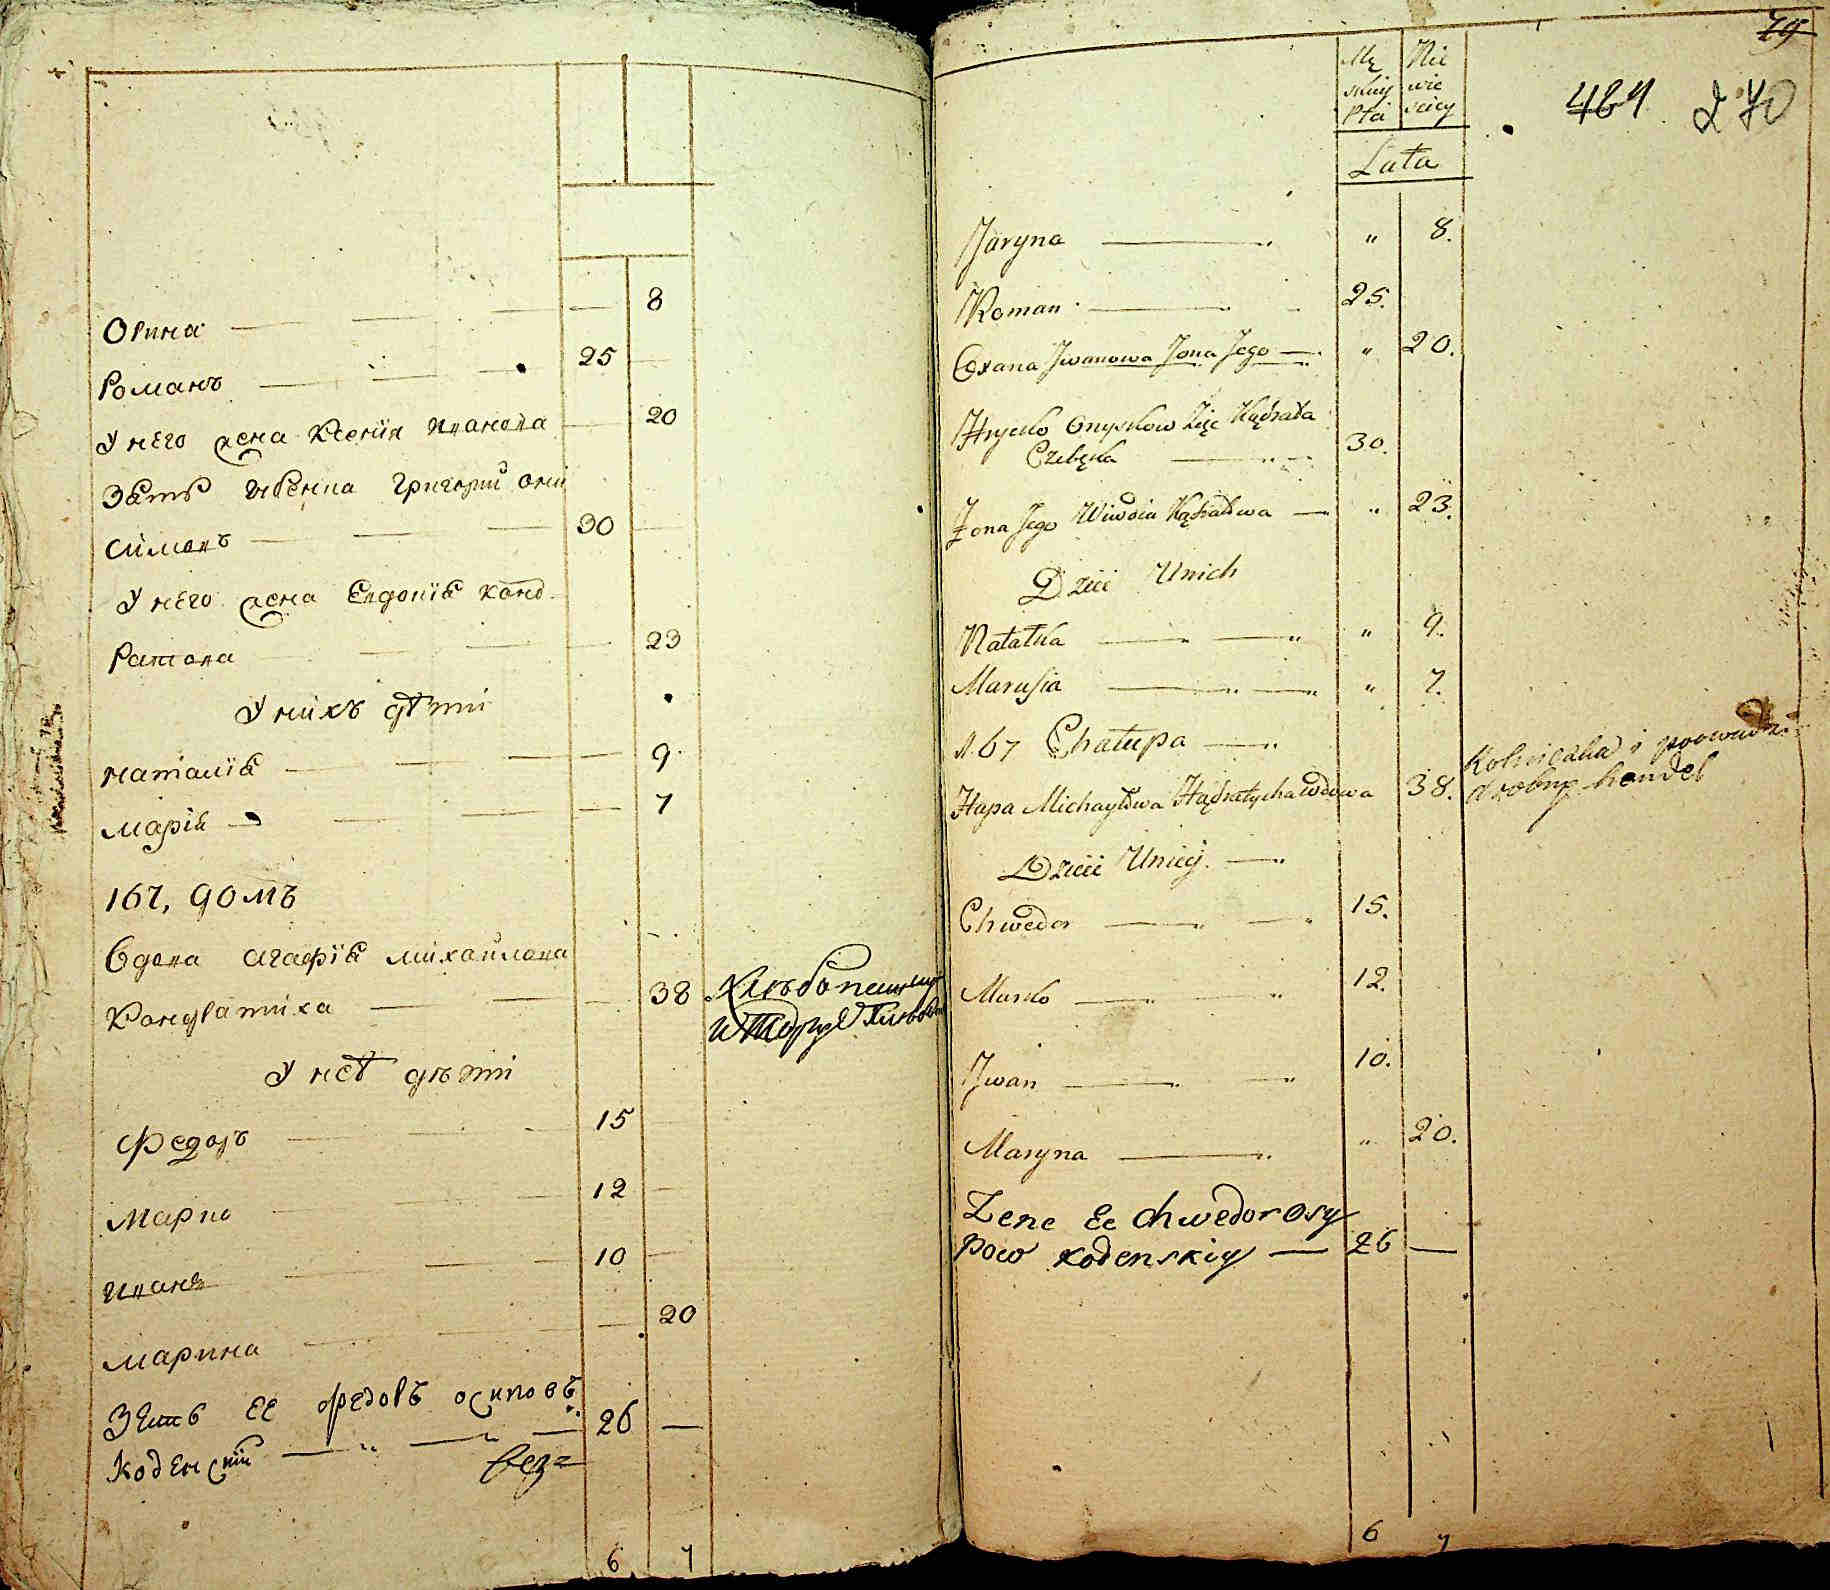 8
Орина
25
Романъ
У него жена Ксенїя Иванова 20
Зять Григорий Они
симовъ 30
У него жена Евдокїя Конд
ратова 23
У нихъ дѣти
Наталїя 9
Марїя 7
167, домъ
Вдова Агафїя Михайлова
Кондратиха 38
У неѣ дѣти
Федоръ 15
Марко 12
Иванъ 10
Марина 20
Зять ее Федоръ Осиповъ
Коденскій 26
6 7
79
Mę Nie
skiey wie
Płci sciey
Lata
461 270
Jaryna " 8.
Roman 25.
Oxana Jwanowa Żona Jego " 20.
Hrycko Onyskow Zięc Kądrata
30.
Żona Jego Wiwdia Kądratowa " 23.
Dzieci Unich
Natałka " 9.
Marusia " 7.
N. 67 Chałupa
Hapa Michayłowa Kądratycha wdowa 38.
Kolniczka i prowadzi
drobny handel
Dzieci Unieÿ
Chwedor 15.
Marko 12.
Jwan 10.
Maryna " 20.
Zenc Ee Chwedor Osy
pow Kodenskiy 26
6 7